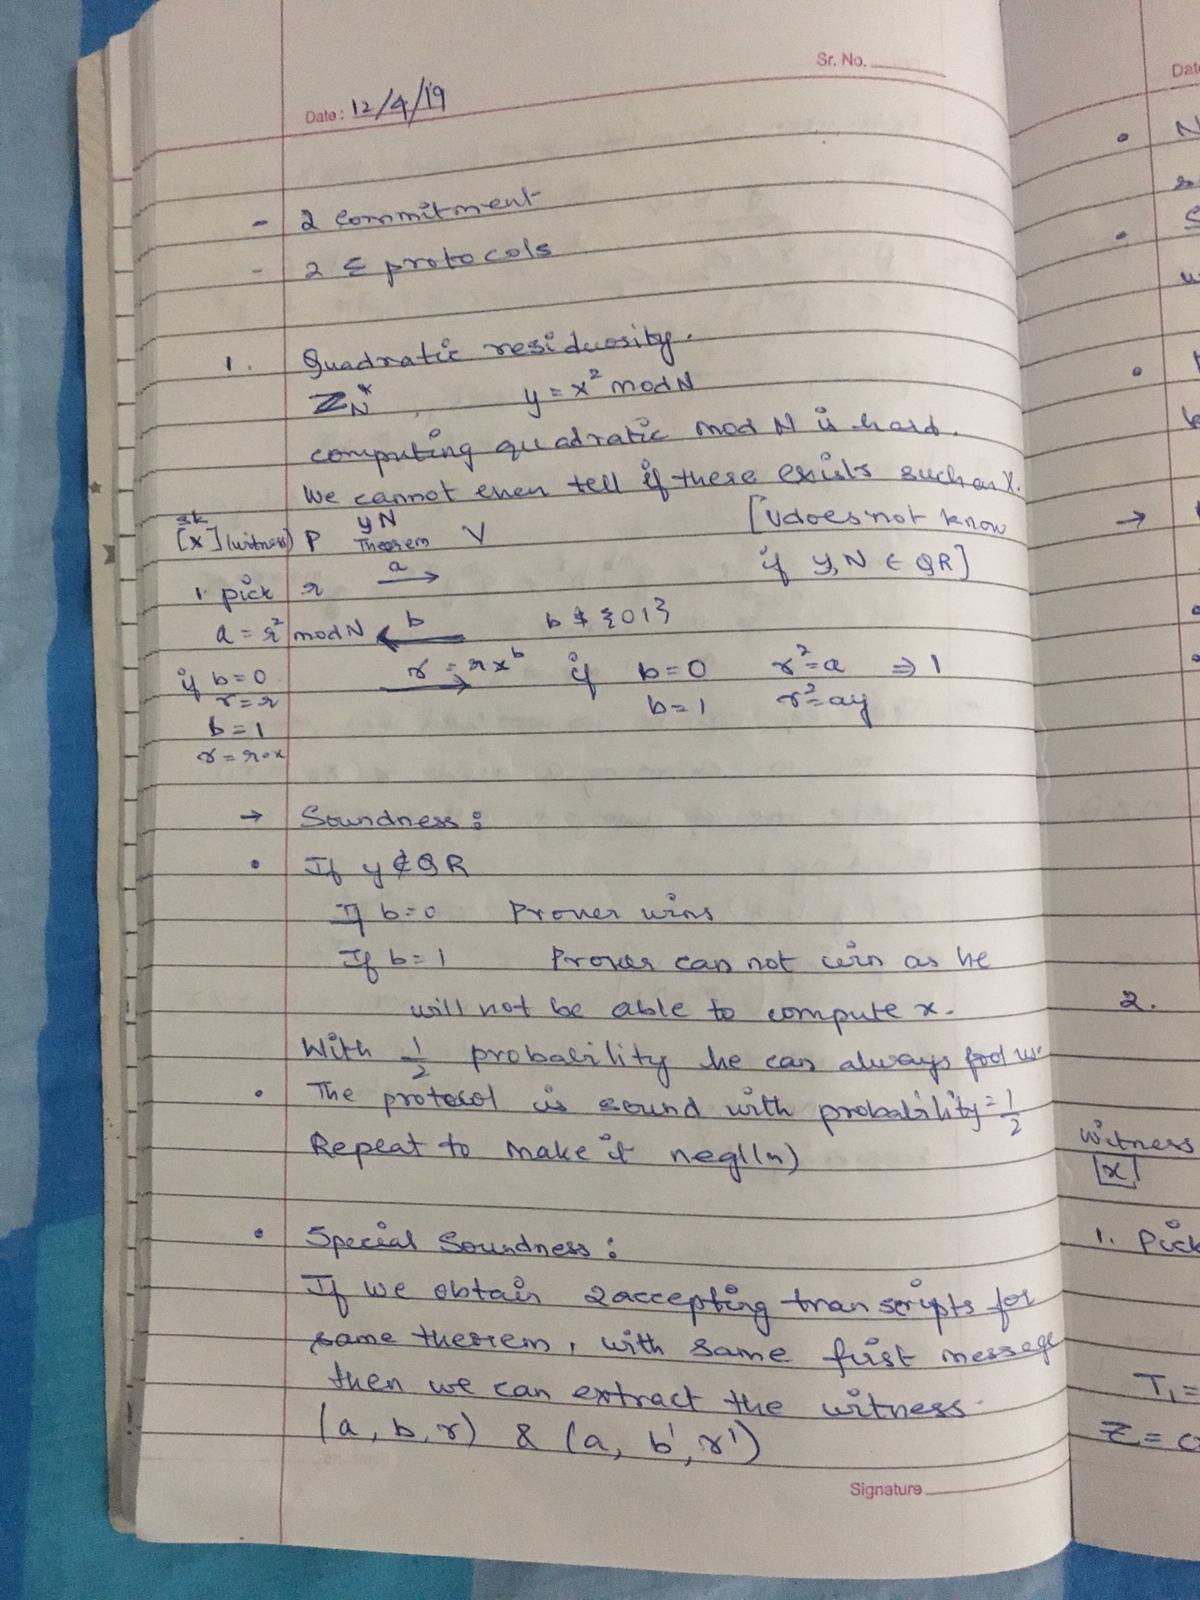 Sr. No.
Date: 12/4/19
- 2 commitment
- 2 Σ protocols
1. Quadratic residuosity.
Z*N , y = x² mod N
computing quadratic mod N is hard.
We cannot even tell if there exists such an X.
sk
[x] (witness) P yN Theorem V [V does not know
if y,N ∈ QR]
1. pick r a →
a = r² mod N ← b b $ {01}
if b=0 r = rx^b → if b=0 r²=a ⇒ 1
r=r b=1 r²=ay
b=1
r=r·x
→ Soundness :
• If y ∉ QR
If b=0 Prover wins
If b=1 Prover can not win as he
will not be able to compute x.
With 1/2 probability he can always fool us.
• The protocol is sound with probability = 1/2
Repeat to make it negl(n)
• Special Soundness :
If we obtain 2 accepting transcripts for
same theorem, with same first message
then we can extract the witness.
(a, b, r) & (a, b', r')
Signature
Date
•
•
•
→
2.
witness
[x]
1. Pick
T₁ =
Z =